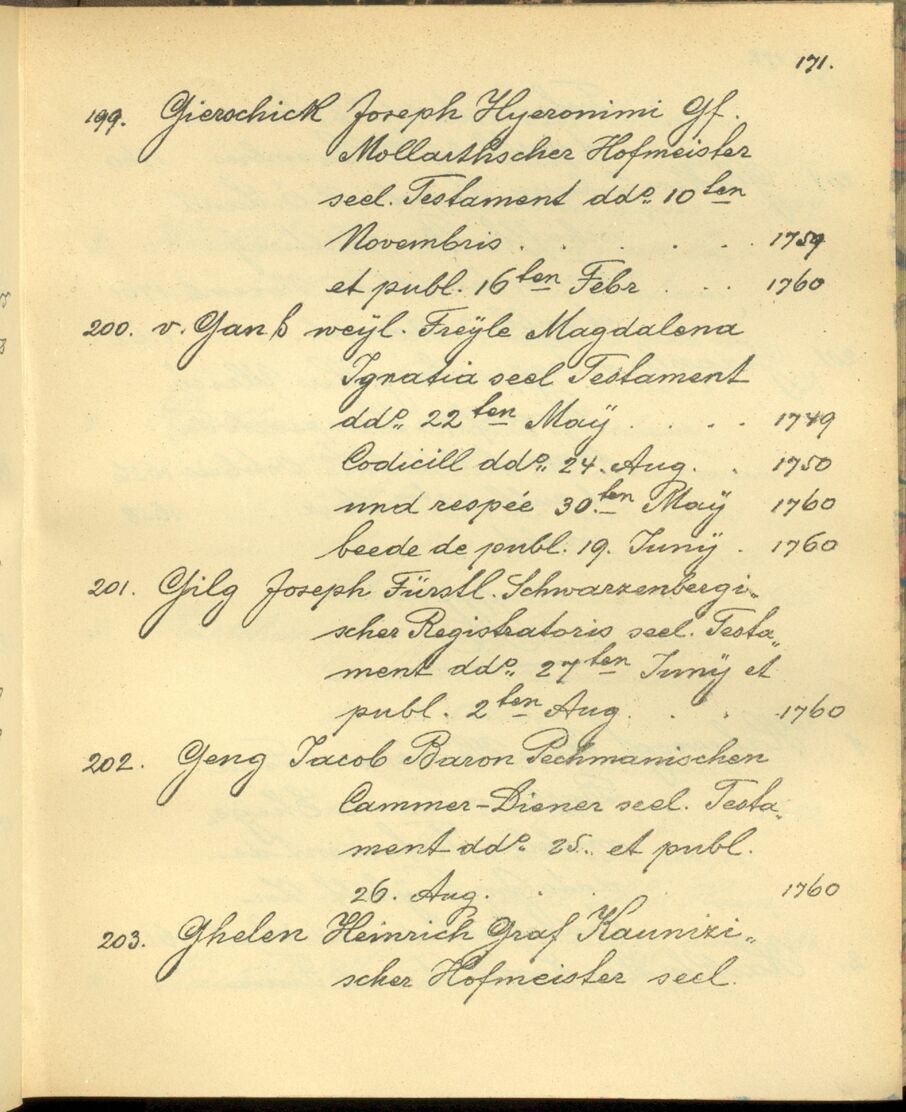 171.
199. Gierschick Joseph Hyeronimi Gf.
Mollarthscher Hofmeister
seel. Testament ddo. 10ten
Novembris . . . . . 1759
et publ. 16ten Febr . . . 1760
200. v. Ganß weyl. Freÿle Magdalena
Ignatia seel Testament
ddo. 22ten Maÿ . . . . 1749
Codicill ddo. 24. Aug. . 1750
und respée 30.ten Maÿ 1760
beede de publ. 19. Junÿ . 1760
201. Gilg Joseph Fürstl. Schwarzenbergi„
scher Registratoris seel. Testa„
ment ddo. 27ten Junÿ et
publ. 2ten Aug. . . . 1760
202. Geng Jacob Baron Pechmanischen
Cammer-Diener seel. Testa„
ment ddo. 25. et publ.
26. Aug. . . . 1760
203. Ghelen Heinrich Graf Kaunizi„
scher Hofmeister seel.